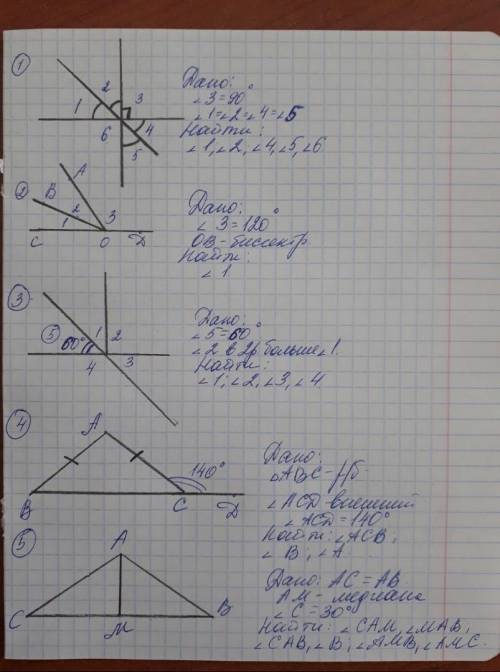 ①
1 2 3 4 5 6
Дано:
∠3=90°
∠1=∠2=∠4=∠5
Найти:
∠1,∠2,∠4,∠5,∠6
②
C B A O D
1 2 3
Дано:
∠3=120°
OB-биссектр.
Найти:
∠1.
③
⑤ 60° 1 2 3 4
Дано:
∠5=60°
∠2 в 2р больше ∠1.
Найти:
∠1;∠2,∠3,∠4
④
A B C D 140°
Дано:
△ABC-р/б
∠ACD внешний
∠ACD=140°
Найти: ∠ACB,
∠B, ∠A
⑤
A C M B
Дано: AC=AB
AM-медиана
∠C=30°
Найти: ∠CAM,∠MAB,
∠CAB,∠B,∠AMB,∠AMC.